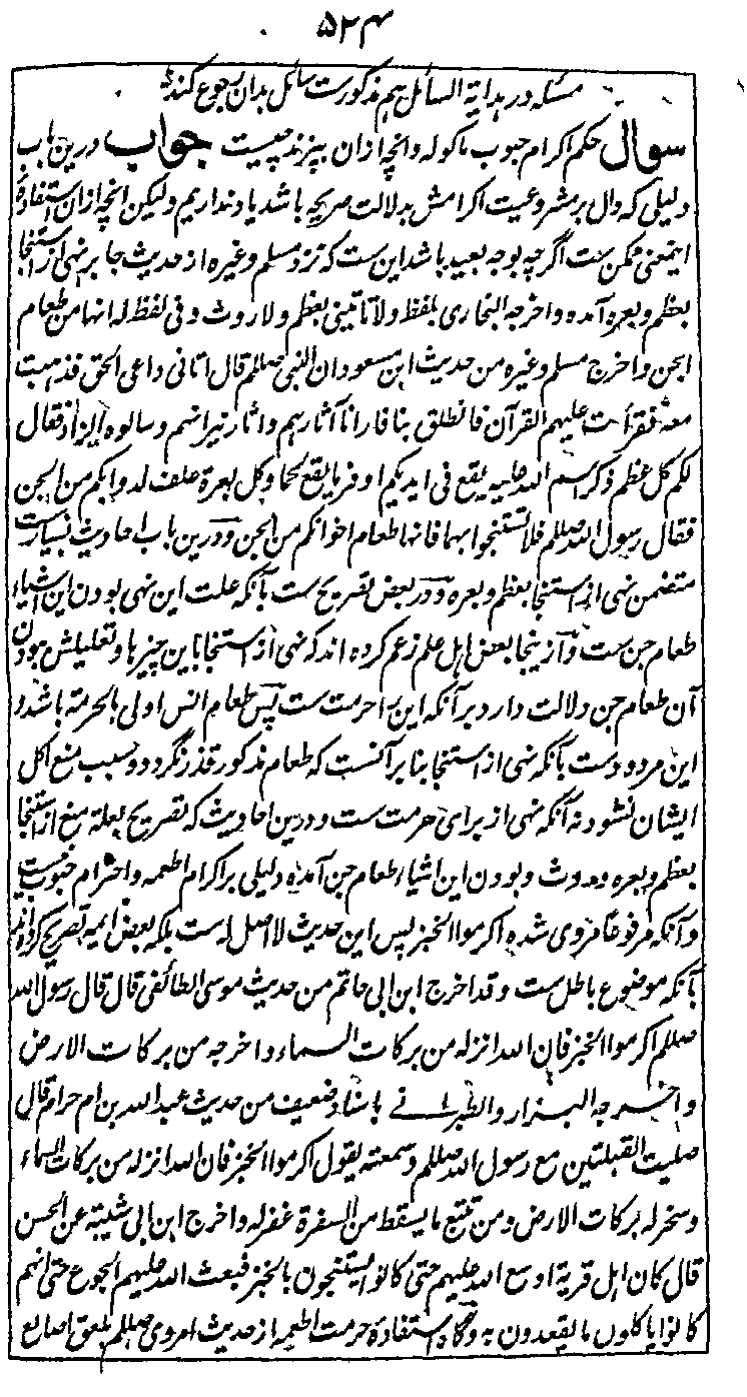 ۵۲۴
مسئله در هدایة السائل هم مذکورست سائل بدان رجوع کند
سوال حکم اکرام حبوب ماکوله وانچه ازان پزند چیست جواب درین باب
دلیلی که دال بر مشروعیت اکرامش بدلالت صریحه باشد یاد نداریم ولیکن انچه ازان استفادهٔ
اینمعنی ممکن ست اگرچه بوجه بعید باشد این ست که نزد مسلم وغیره از حدیث جابر نهی از استنجا
بعظم وبعره آمده واخرجه البخاری بلفظ ولا تاتینی بعظم ولا روث وفی لفظ له انها من طعام
الجن واخرج مسلم وغیره من حدیث ابن مسعود ان النبی صللم قال اتانی داعی الجن فذهبت
معه فقرأت علیهم القرآن فانطلق بنا فارانا آثارهم واثار نیرانهم وسالوه الزاد فقال
لکم کل عظم ذکر اسم الله علیه یقع فی ایدیکم اوفر ما یقع لحما وکل بعرة علف لدوابکم من الجن
فقال رسول الله صللم فلا تستنجوا بهما فانها طعام اخوانکم من الجن ودرین باب احادیث بسیارست
متضمن نهی از استنجا بعظم وبعره ودر بعض تصریح ست بآنکه علت این نهی بودن این اشیاء
طعام جن ست وازینجا بعض اهل علم زعم کرده اند که نهی از استنجا باین چیزها وتعلیلش بودن
آن طعام جن دلالت دارد بر آنکه این را حرمت ست پس طعام انس اولی بالحرمة باشد و
این مردودست بآنکه نهی از استنجا بنا بر آنست که طعام مذکور قذر نگردد وسبب منع اکل
ایشان نشود نه آنکه نهی از برای حرمت ست ودرین احادیث که تصریح بعلة منع از استنجا
بعظم وبعره وروث وبودن این اشیاء طعام جن آمده دلیلی بر اکرام اطعمه واحترام حبوب نیست
وآنکه مرفوعا مروی شده اکرموا الخبز پس این حدیث لا اصل له است بلکه بعض ایمه تصریح کرده اند
بآنکه موضوع باطل ست وقد اخرج ابن ابی حاتم من حدیث موسی الطائفی قال قال رسول الله
صللم اکرموا الخبز فان الله انزله من برکات السماء واخرجه من برکات الارض
واخرجه البزار والطبرانے باسناد ضعیف من حدیث عبد الله بن ام حرام قال
صلیت القبلتین مع رسول الله صللم وسمعته یقول اکرموا الخبز فان الله انزله من برکات السماء
وسخر له برکات الارض ومن تتبع ما یسقط من السفرة غفر له واخرج ابن ابی شیبة عن الحسن
قال کان اهل قریة اوسع الله علیهم حتی کانوا یستنجون بالخبز فبعث الله علیهم الجوع حتی انهم
کانوا یاکلون ما یقعدون به وگاه استفادهٔ حرمت اطعمه از حدیث امروی صللم بلعق اصابع